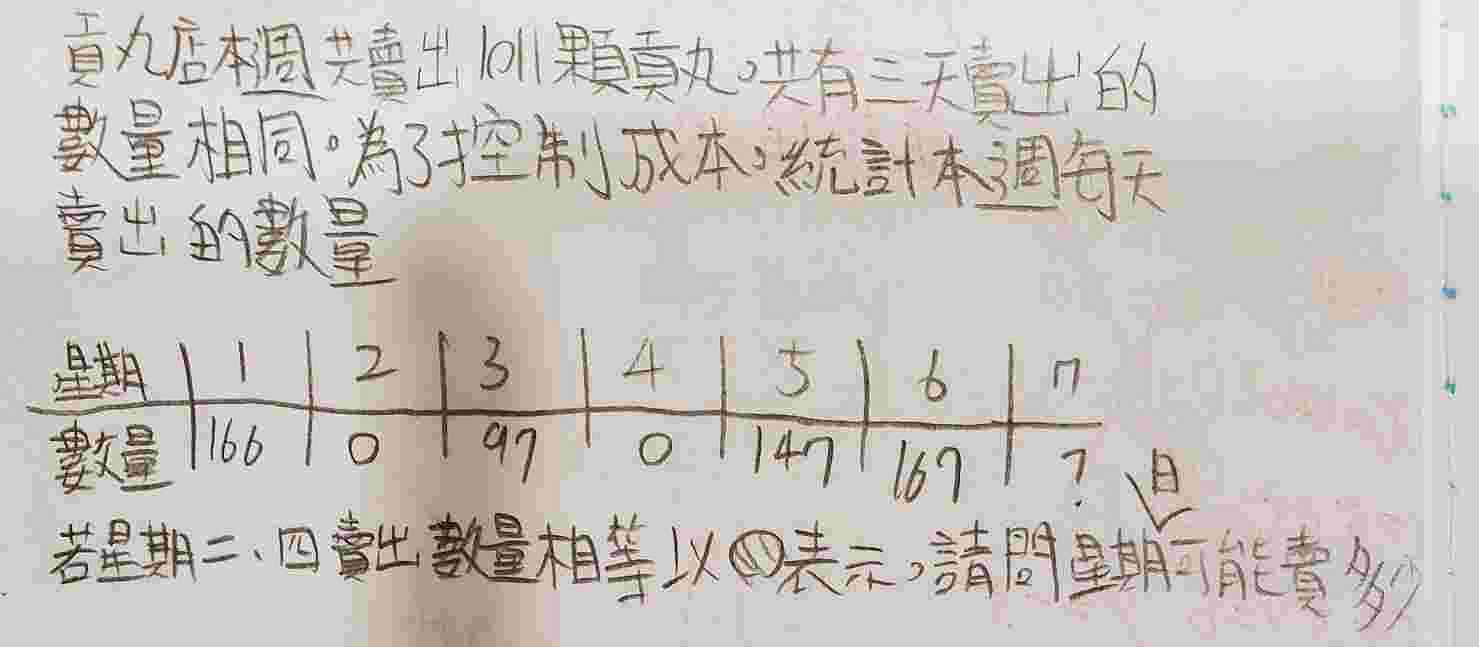 貢丸店本週共賣出1011顆貢丸，共有三天賣出的
數量相同。為了控制成本，統計本週每天
賣出的數量
星期 1 2 3 4 5 6 7
數量 166 0 97 0 147 167 ?
若星期二、四賣出數量相等以 表示，請問星期日可能賣多少